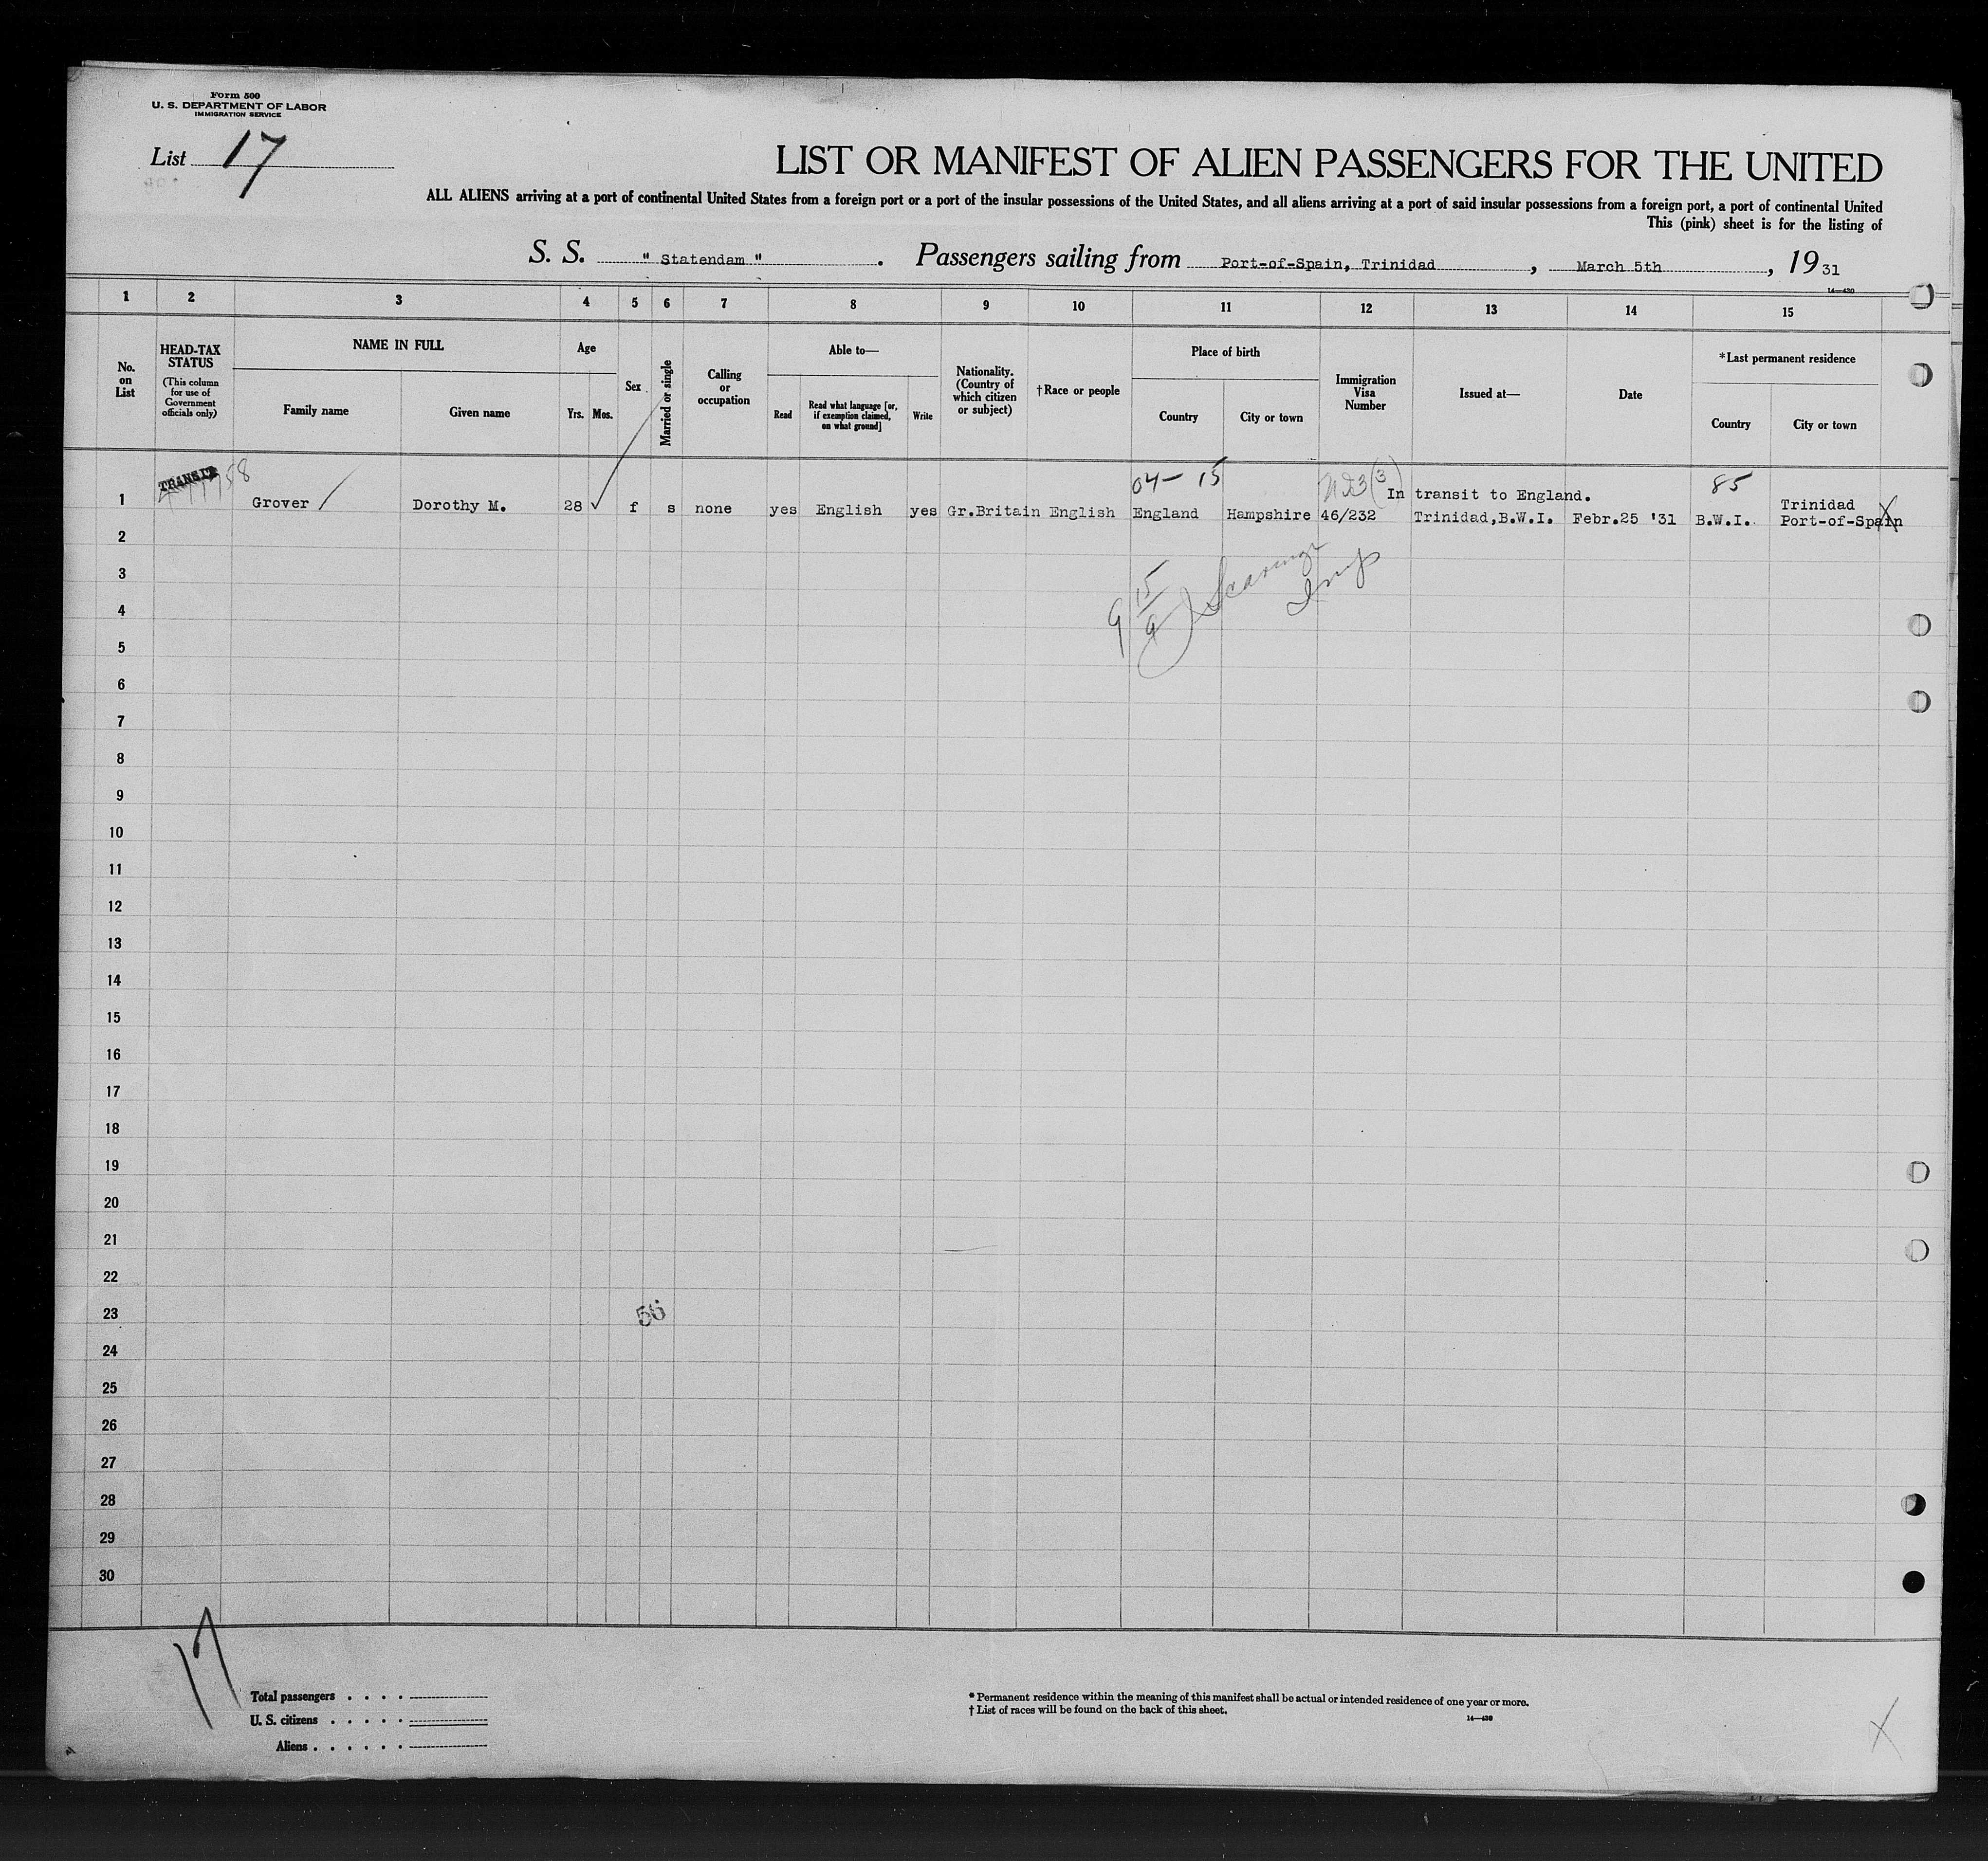 Form 500
U. S. DEPARTMENT OF LABOR
IMMIGRATION SERVICE
List 17
LIST OR MANIFEST OF ALIEN PASSENGERS FOR THE UNITED
ALL ALIENS arriving at a port of continental United States from a foreign port or a port of the insular possessions of the United States, and all aliens arriving at a port of said insular possessions from a foreign port, a port of continental United
This (pink) sheet is for the listing of
S. S. " Statendam ". Passengers sailing from Port-of-Spain, Trinidad, March 5th, 1931
14—430
1 2 3 4 5 6 7 8 9 10 11 12 13 14 15
No. on List
HEAD-TAX STATUS
(This column for use of Government officials only)
NAME IN FULL
Family name
Given name
Age
Yrs.
Mos.
Sex
Married or single
Calling or occupation
Able to—
Read
Read what language [or, if exemption claimed, on what ground]
Write
Nationality. (Country of which citizen or subject)
†Race or people
Place of birth
Country
City or town
Immigration Visa Number
Issued at—
Date
*Last permanent residence
Country
City or town
TRANSIT
58
04- 15
(3)
In transit to England.
85
Trinidad
1 Grover Dorothy M. 28 f s none yes English yes Gr.Britain English England Hampshire 46/232 Trinidad,B.W.I. Febr.25 '31 B.W.I. Port-of-Spain
X
2
3
15
4
9
9
Insp
5
6
7
8
9
10
11
12
13
14
15
16
17
18
19
20
21
22
23
56
24
25
26
27
28
29
30
17
Total passengers . . . .
U. S. citizens . . . . .
Aliens . . . . . .
* Permanent residence within the meaning of this manifest shall be actual or intended residence of one year or more.
† List of races will be found on the back of this sheet.
14—430
X